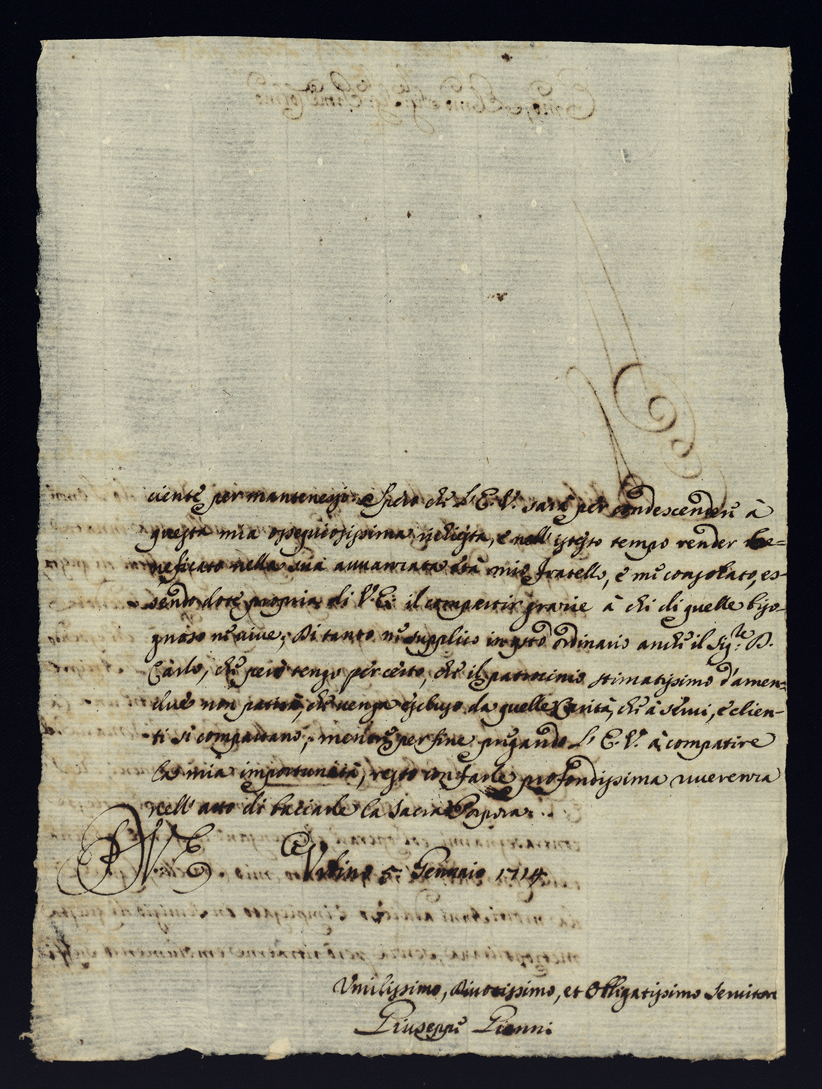 ciente per mantenersi. Spero che l'E. V. sarà per condescendere à
questa mia ossequiosissima richiesta, e nell'istesso tempo render be=
neficato nella sua avvanzata età mio fratello, e me consolato, es=
sendo dote propria di V. E. il compartir grazie à chi di quelle biso=
gnoso ne vive; Di tanto ne supplico in qsto ordinario anche il Sig.re D.
Carlo, che però tengo per certo, che il patrocinio stimatissimo d'amen=
due non patirà, che venga escluso da quelle Carità, che à servi, e clien=
ti si compartano; mentre per fine pregando l'E. V. à compatire
la mia importunità, resto con farle profondissima riverenza
nell'atto di bacciarle la Sacra Porpora.
D V E
Urbino 5 Gennaio 1714
Umilissimo, Divotissimo, et Obligatissimo Servitore
Giuseppe Gianni